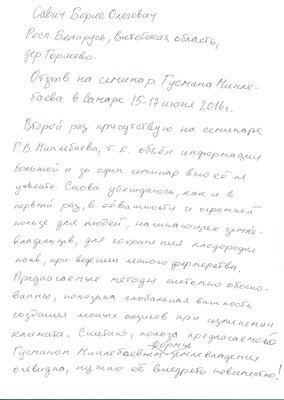 Савич Борис Олегович
Респ. Беларусь, Витебская область,
дер. Гормево.
Отзыв на семинар Гусмана Минле-
баева в Самаре 15-17 июня 2016г.
Второй раз присутствую на семинаре
Г.В. Минлебаева, т.к. объём информации
большой и за один семинар всю её не
усвоить. Снова убеждаюсь, как и в
первый раз, в её важности и огромной
пользе для людей, начинающих земле-
владельцев, для сохранения плодородия
почв, при ведении лесного фермерства.
Предлагаемые методы системно обосно-
ванны, показана глобальная важность
создания лесных оазисов при изменении
климата. Считаю, польза предлагаемой
Гусманом Минлебаевым формы землевладения
очевидна, нужно её внедрять повсеместно!